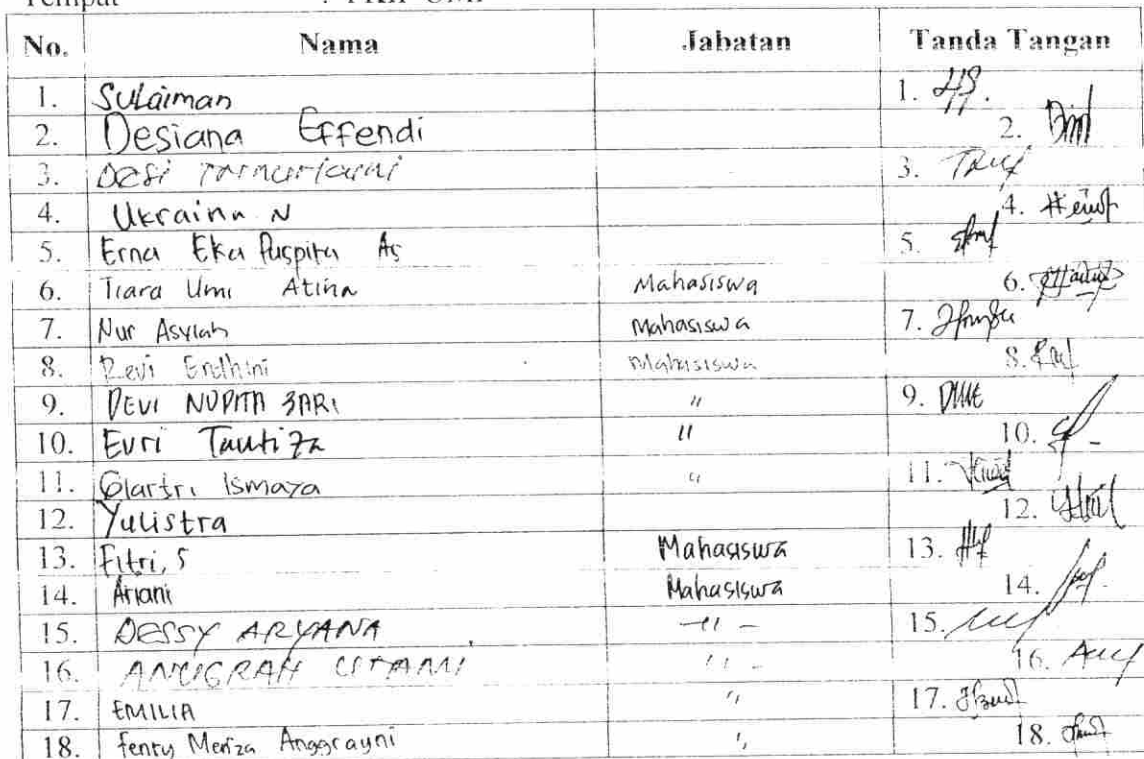 Tempat :
No. Nama Jabatan Tanda Tangan
1. Sulaiman 1.
2. Desiana Effendi 2.
3. Desi 3.
4. Ukraina N 4.
5. Erna Eka Puspita As 5.
6. Tiara Umi Atina Mahasiswa 6.
7. Nur Asyiah Mahasiswa 7.
8. Revi Endhini Mahasiswa 8.
9. DEVI NOPITA SARI " 9.
10. Evri Tautiza " 10.
11. Ismaya " 11.
12. Yulistra 12.
13. Fitri, S Mahasiswa 13.
14. Ariani Mahasiswa 14.
15. DESSY ARYANA - " - 15.
16. ANUGRAH UTAMI " - 16.
17. EMILIA " 17.
18. Fenty Meriza Anggrayni " 18.